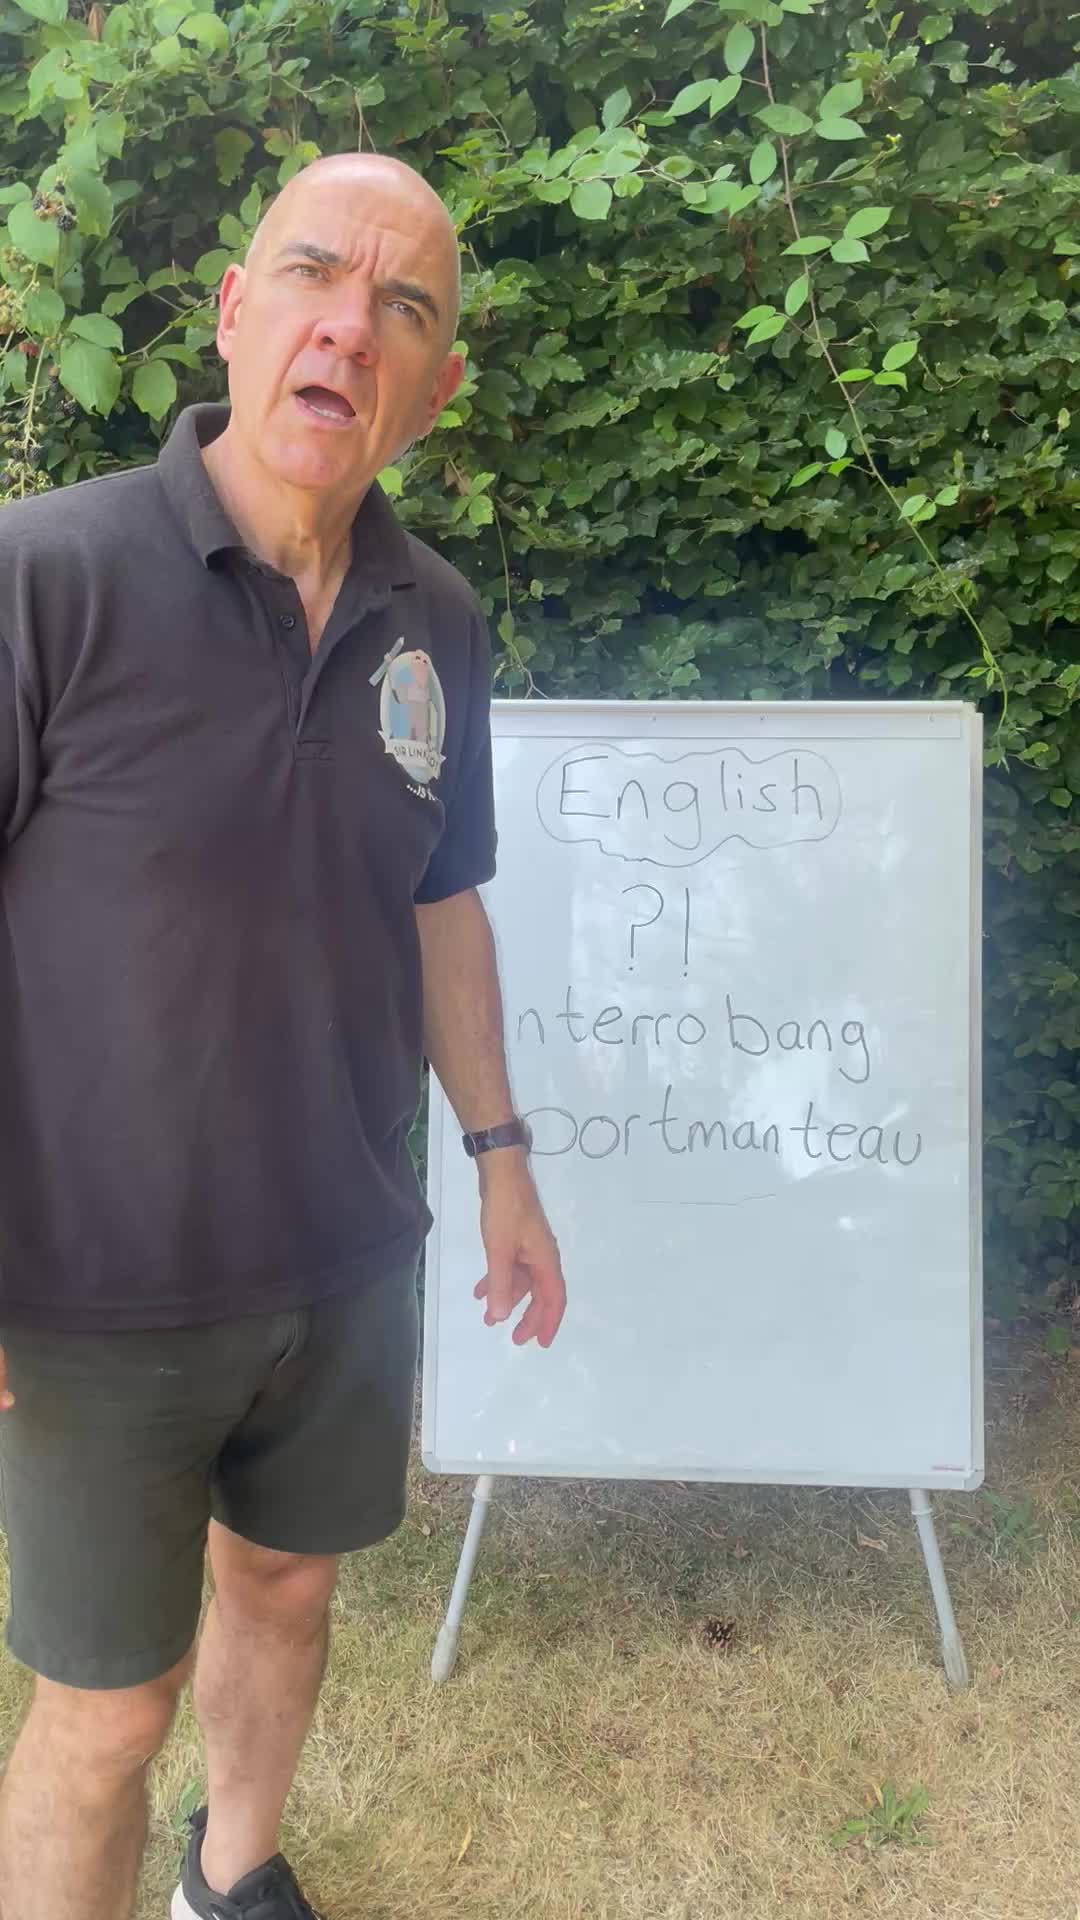 English
?!
nterrobang
portmanteau
SIR LIN